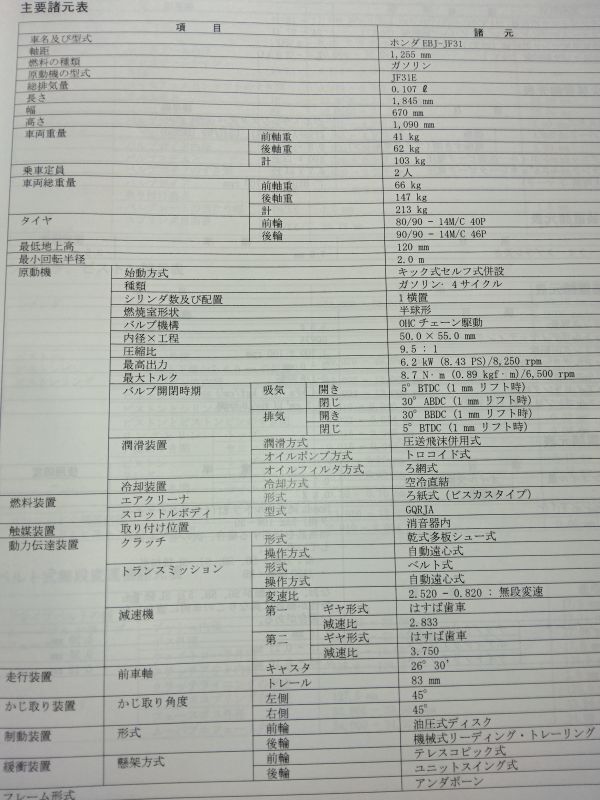 主要諸元表
項 目 諸 元
車名及び型式 ホンダ EBJ-JF31
軸距 1,255 mm
燃料の種類 ガソリン
原動機の型式 JF31E
総排気量 0.107 ℓ
長さ 1,845 mm
幅 670 mm
高さ 1,090 mm
車両重量 前軸重 41 kg
後軸重 62 kg
計 103 kg
乗車定員 2 人
車両総重量 前軸重 66 kg
後軸重 147 kg
計 213 kg
タイヤ 前輪 80/90 - 14M/C 40P
後輪 90/90 - 14M/C 46P
最低地上高 120 mm
最小回転半径 2.0 m
原動機 始動方式 キック式セルフ式併設
種類 ガソリン・4 サイクル
シリンダ数及び配置 1 横置
燃焼室形状 半球形
バルブ機構 OHC チェーン駆動
内径×工程 50.0 × 55.0 mm
圧縮比 9.5 : 1
最高出力 6.2 kW (8.43 PS)/8,250 rpm
最大トルク 8.7 N・m (0.89 kgf・m)/6,500 rpm
バルブ開閉時期 吸気 開き 5° BTDC (1 mm リフト時)
閉じ 30° ABDC (1 mm リフト時)
排気 開き 30° BBDC (1 mm リフト時)
閉じ 5° BTDC (1 mm リフト時)
潤滑装置 潤滑方式 圧送飛沫併用式
オイルポンプ方式 トロコイド式
オイルフィルタ方式 ろ網式
冷却装置 冷却方式 空冷直結
燃料装置 エアクリーナ 形式 ろ紙式 (ビスカスタイプ)
スロットルボディ 型式 GQRJA
触媒装置 取り付け位置 消音器内
動力伝達装置 クラッチ 形式 乾式多板シュー式
操作方式 自動遠心式
トランスミッション 形式 ベルト式
操作方式 自動遠心式
変速比 2.520 - 0.820 : 無段変速
減速機 第一 ギヤ形式 はすば歯車
減速比 2.833
第二 ギヤ形式 はすば歯車
減速比 3.750
走行装置 前車軸 キャスタ 26° 30′
トレール 83 mm
かじ取り装置 かじ取り角度 左側 45°
右側 45°
制動装置 形式 前輪 油圧式ディスク
後輪 機械式リーディング・トレーリング
緩衝装置 懸架方式 前輪 テレスコピック式
後輪 ユニットスイング式
フレーム形式 アンダボーン